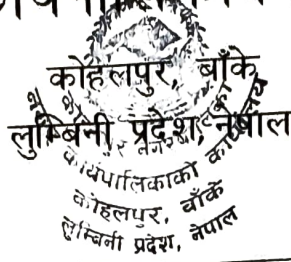 कोहलपुर, बाँके
लुम्बिनी प्रदेश, नेपाल
कार्यपालिकाको
कोहलपुर, बाँके
लुम्बिनी प्रदेश, नेपाल